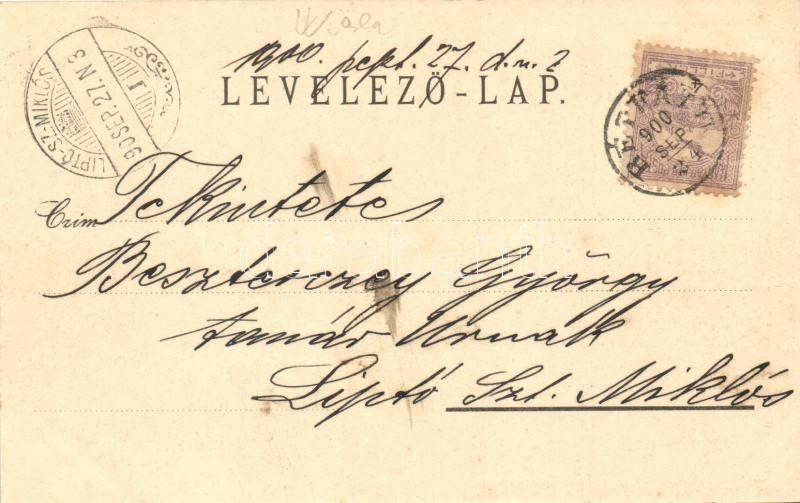 1900. sept. 27. d. u. 2
LEVELEZŐ-LAP.
LIPTÓ-SZ-MIKLÓS
900 SEP. 27. N 3
900
SEP
24
Czim
Tekintetes
Beszterczey György
tanár Urnak
Liptó Szt. Miklós
databanth